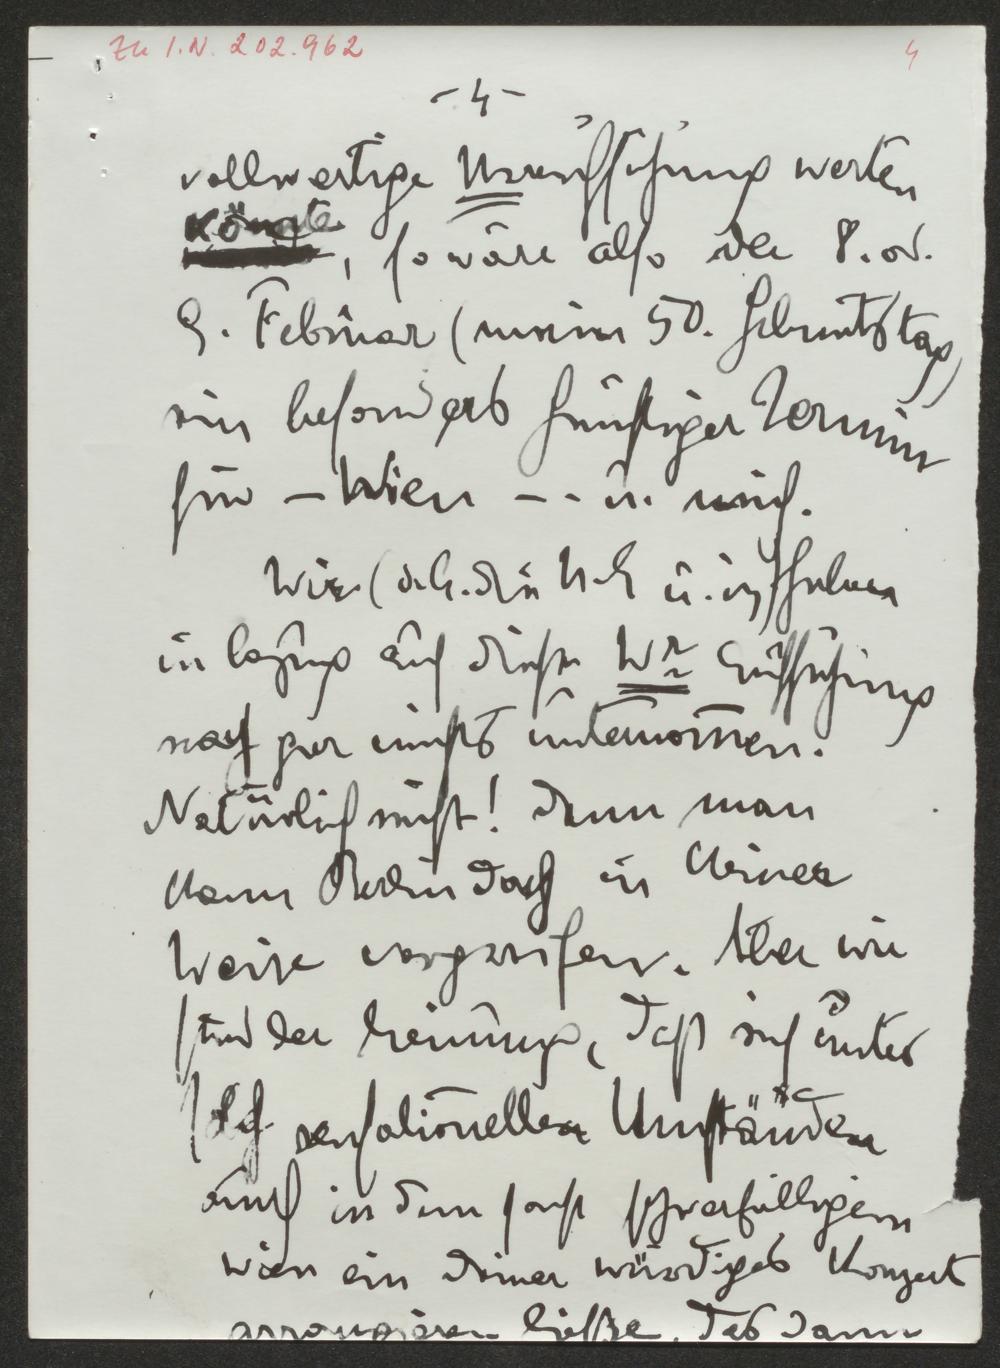 Zu I.N. 202.962
4
- 4 -
vollwertige Uraufführung werten
könnte, so wäre also der 8. od.
9. Februar (meinen 50. Geburtstag)
ein besonders günstiger Termin
für – Wien – – u. mich.
Wir (d.h. die U.E. u. ich) haben
in bezug auf diese Ur Aufführung
noch gar nichts unternommen.
Natürlich nicht! Denn man
kann Berlin doch in keiner
Weise vorgreifen. Aber wir
sind der Meinung, daß sich unter
solch sensationellen Umständen
auch in dem sonst schwerfälligen
Wien ein Deiner würdiges Konzert
arrangieren ließe. Das dann